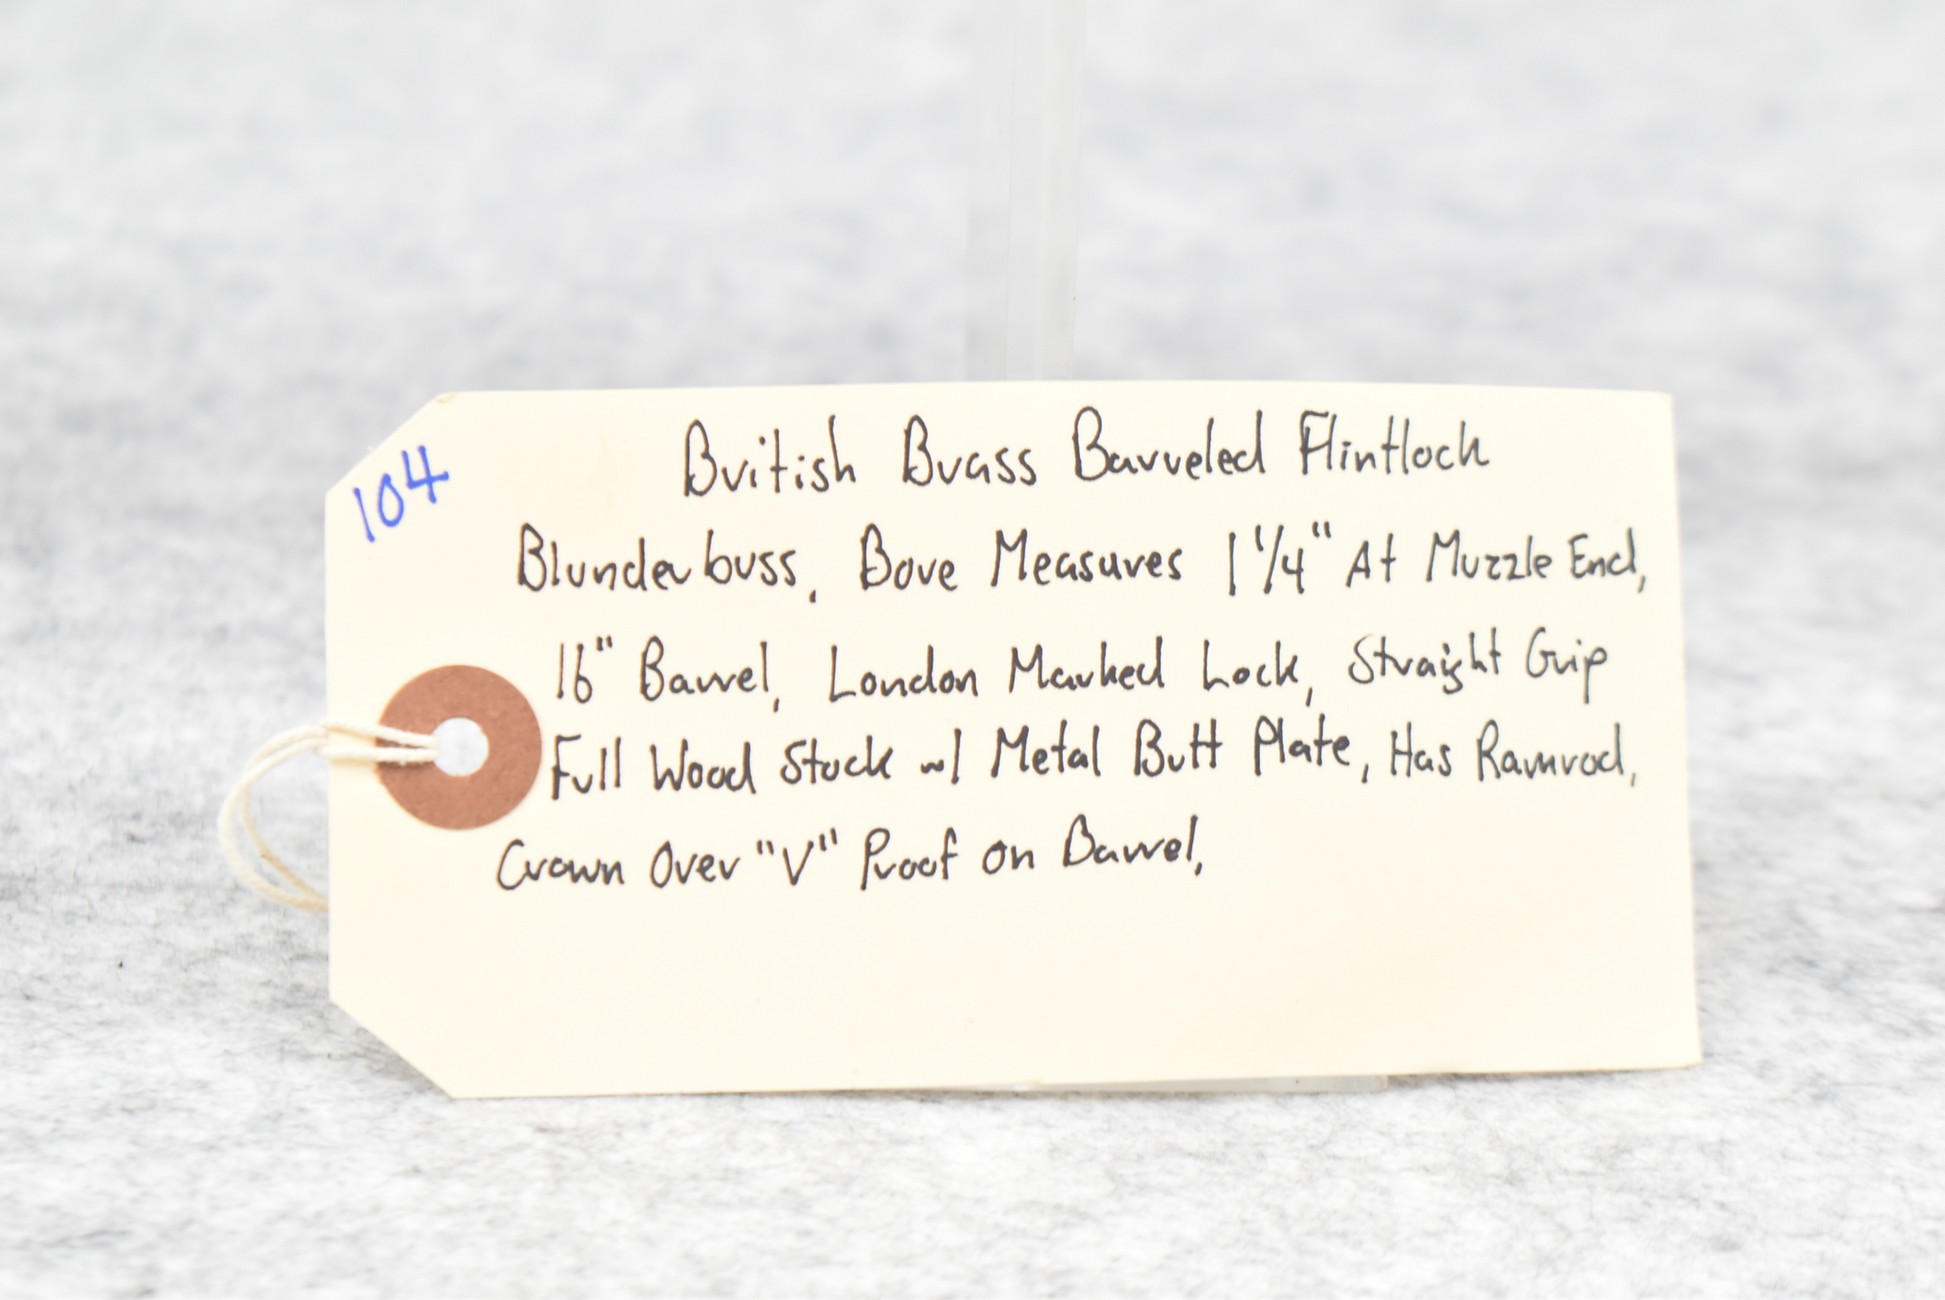 104
British Brass Barreled Flintlock
Blunderbuss, Bore Measures 1 1/4" At Muzzle End,
16" Barrel, London Marked Lock, Straight Grip
Full Wood Stock w/ Metal Butt Plate, Has Ramrod,
Crown Over "V" Proof on Barrel,